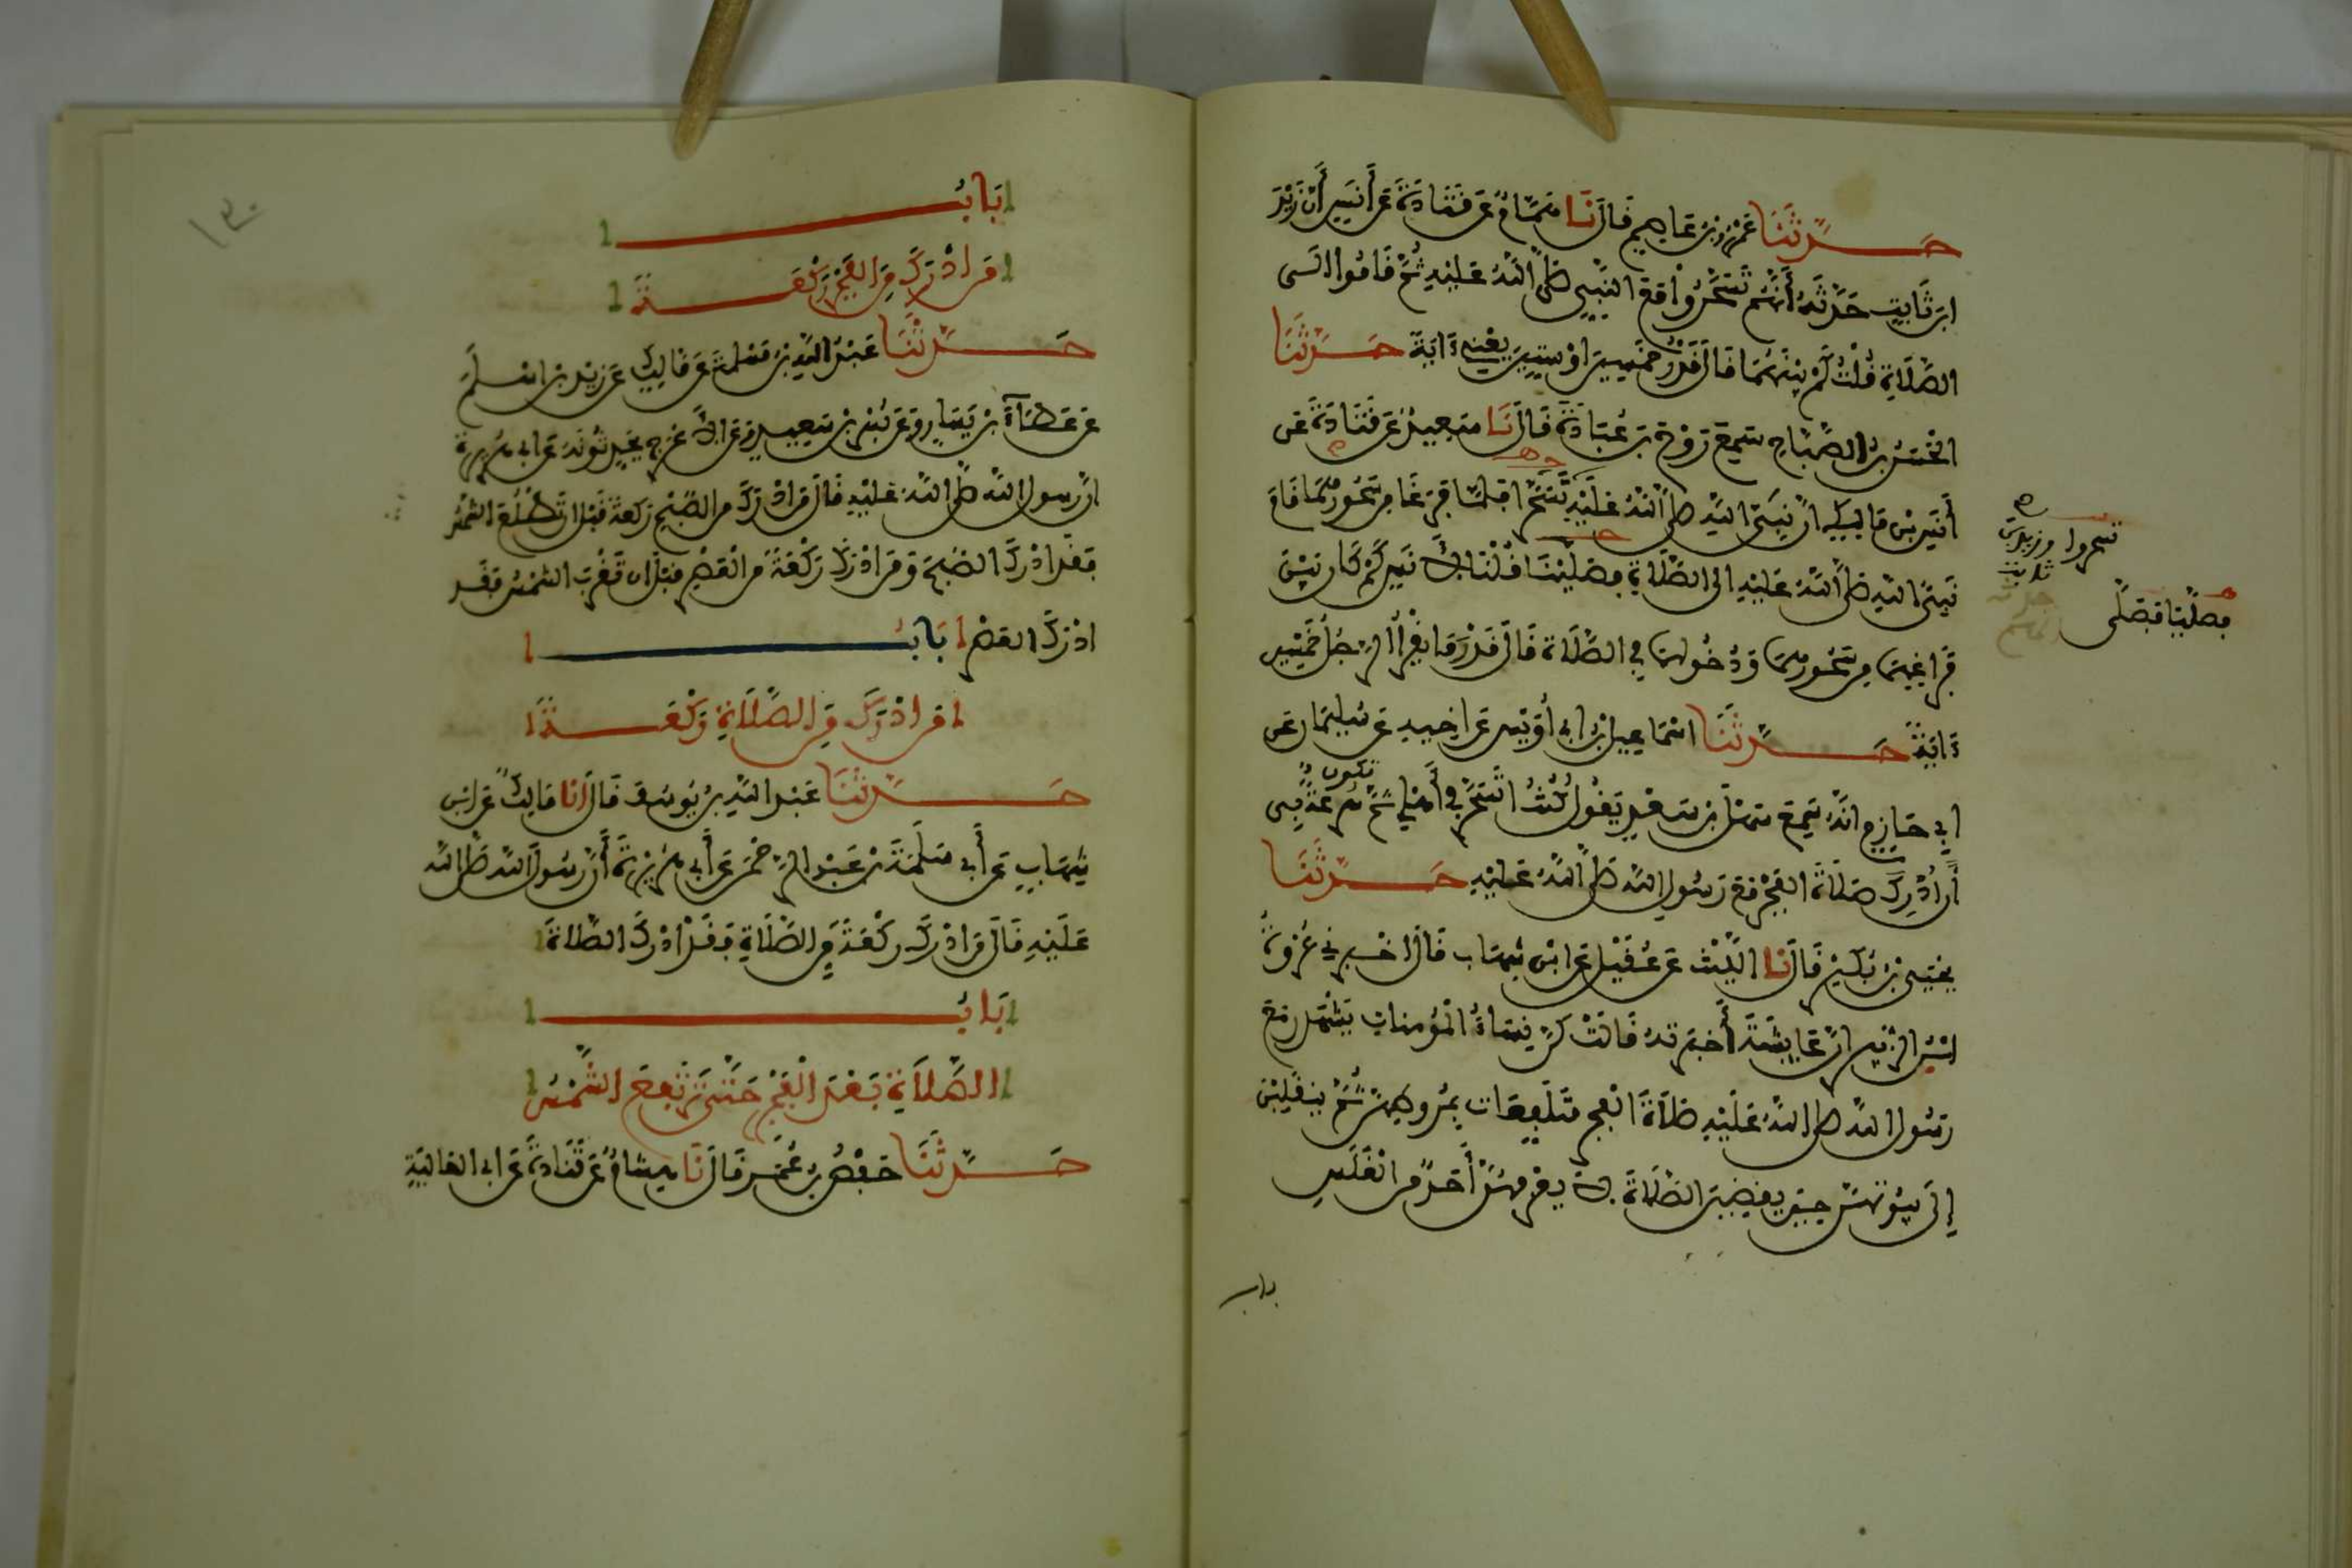 حَدَّثَنَا عَمْرُو بْنُ عَاصِمٍ قَالَ نَا هَمَّامٌ عَن قَتَادَةَ عَن أَنَسٍ أَنَّ زَيْدَ
ابنَ ثَابِتٍ حَدَّثَهُ أَنَّهُمْ تَسَحَّرُوا مَعَ النَّبِيِّ صَلَّى اللَّهُ عَلَيْهِ ثُمَّ قَامُوا إلَى
الصَّلَاةِ قُلْتُ كَمْ بَيْنَهُمَا قَالَ قَدْرُ خَمْسِينَ أَوْ سِتِّينَ يَعْنِي ءَايَةً حَدَّثَنَا
الْحَسَنُ بْنُ الصَّبَّاحِ سَمِعَ رَوْحَ بْنَ عُبَادَةَ قَالَ نَا سَعِيدٌ عَن قَتَادَةَ عَن
أَنَسِ بْنِ مَالِكٍ أَنَّ نَبِيَّ اللَّهِ صَلَّى اللَّهُ عَلَيْهِ تَسَحَّرَا فَلَمَّا فَرَغَا مِن سَحُورِهِمَا قَامَ
نَبِيُّ اللَّهِ صَلَّى اللَّهُ عَلَيْهِ إلَى الصَّلَاةِ فَصَلَّيْنَا قُلْنَا لِأَنَسٍ كَمْ كَانَ بَيْنَ
فَرَاغِهِمَا مِن سَحُورِهِمَا وَدُخُولِهِمَا فِي الصَّلَاةِ قَالَ قَدْرُ مَا يَقْرَأُ الرَّجُلُ خَمْسِينَ
ءَايَةً حَدَّثَنَا إسْمَاعِيلُ بْنُ أَبِي أُوَيْسٍ عَن أَخِيهِ عَن سُلَيْمَانَ عَن
أَبِي حَازِمٍ أَنَّهُ سَمِعَ سَهْلَ بْنَ سَعْدٍ يَقُولُ كُنْتُ أَتَسَحَّرُ فِي أَهْلِي ثُمَّ تكون سُرْعَةٌ بِي
أَنْ أُدْرِكَ صَلَاةَ الْفَجْرِ مَعَ رَسُولِ اللَّهِ صَلَّى اللَّهُ عَلَيْهِ حَدَّثَنَا
يَحْيَى بْنُ بُكَيْرٍ قَالَ نَا اللَّيْثُ عَن عُقَيْلٍ عَن ابْنِ شِهَابٍ قَالَ أَخْبَرَنِي عُرْوَةُ
ابْنُ الزُّبَيْرِ أَنَّ عَائِشَةَ أَخْبَرَتْهُ قَالَتْ كُنَّ نِسَاءُ الْمُؤْمِنَاتِ يَشْهَدْنَ مَعَ
رَسُولِ اللَّهِ صَلَّى اللَّهُ عَلَيْهِ صَلَاةَ الْفَجْرِ مُتَلَفِّعَاتٍ بِمُرُوطِهِنَّ ثُمَّ يَنْقَلِبْنَ
إلَى بُيُوتِهِنَّ حِينَ يَقْضِينَ الصَّلَاةَ لَا يَعْرِفُهُنَّ أَحَدٌ مِنَ الْغَلَسِ
باب
تسحروا وزيد بن
ثابت
فصلينا فصلى
١٣٠
بَابُ
مَن أَدْرَكَ مِنَ الْفَجْرِ رَكْعَةً
حَدَّثَنَا عَبْدُ اللَّهِ بْنُ مَسْلَمَةَ عَن مَالِكٍ عَن زَيْدِ بْنِ أَسْلَمَ
عَن عَطَاءِ بْنِ يَسَارٍ وَعَن بُسْرِ بْنِ سَعِيدٍ وَعَن الأَعْرَجِ يُحَدِّثُونَهُ عَن أَبِي هُرَيْرَةَ
أَنَّ رَسُولَ اللَّهِ صَلَّى اللَّهُ عَلَيْهِ قَالَ مَن أَدْرَكَ مِن الصُّبْحِ رَكْعَةً قَبْلَ أَن تَطْلُعَ الشَّمْسُ
فَقَدْ أَدْرَكَ الصُّبْحَ وَمَن أَدْرَكَ رَكْعَةً مِنَ الْعَصْرِ قَبْلَ أَن تَغْرُبَ الشَّمْسُ فَقَد
أَدْرَكَ الْعَصْرَ بَابُ
مَن أَدْرَكَ مِنَ الصَّلَاةِ رَكْعَةً
حَدَّثَنَا عَبْدُ اللَّهِ بْنُ يُوسُفَ قَالَ أَنَا مَالِكٌ عَن ابْنِ
شِهَابٍ عَن أَبِي سَلَمَةَ بْنِ عَبْدِ الرَّحْمَنِ عَن أَبِي هُرَيْرَةَ أَنَّ رَسُولَ اللَّهِ صَلَّى اللَّهُ
عَلَيْهِ قَالَ مَن أَدْرَكَ رَكْعَةً مِنَ الصَّلَاةِ فَقَدْ أَدْرَكَ الصَّلَاةَ
بَابُ
الصَّلَاةِ بَعْدَ الْفَجْرِ حَتَّى تَرْتَفِعَ الشَّمْسُ
حَدَّثَنَا حَفْصُ بْنُ عُمَرَ قَالَ نَا هِشَامٌ عَن قَتَادَةَ عَن أَبِي الْعَالِيَةِ